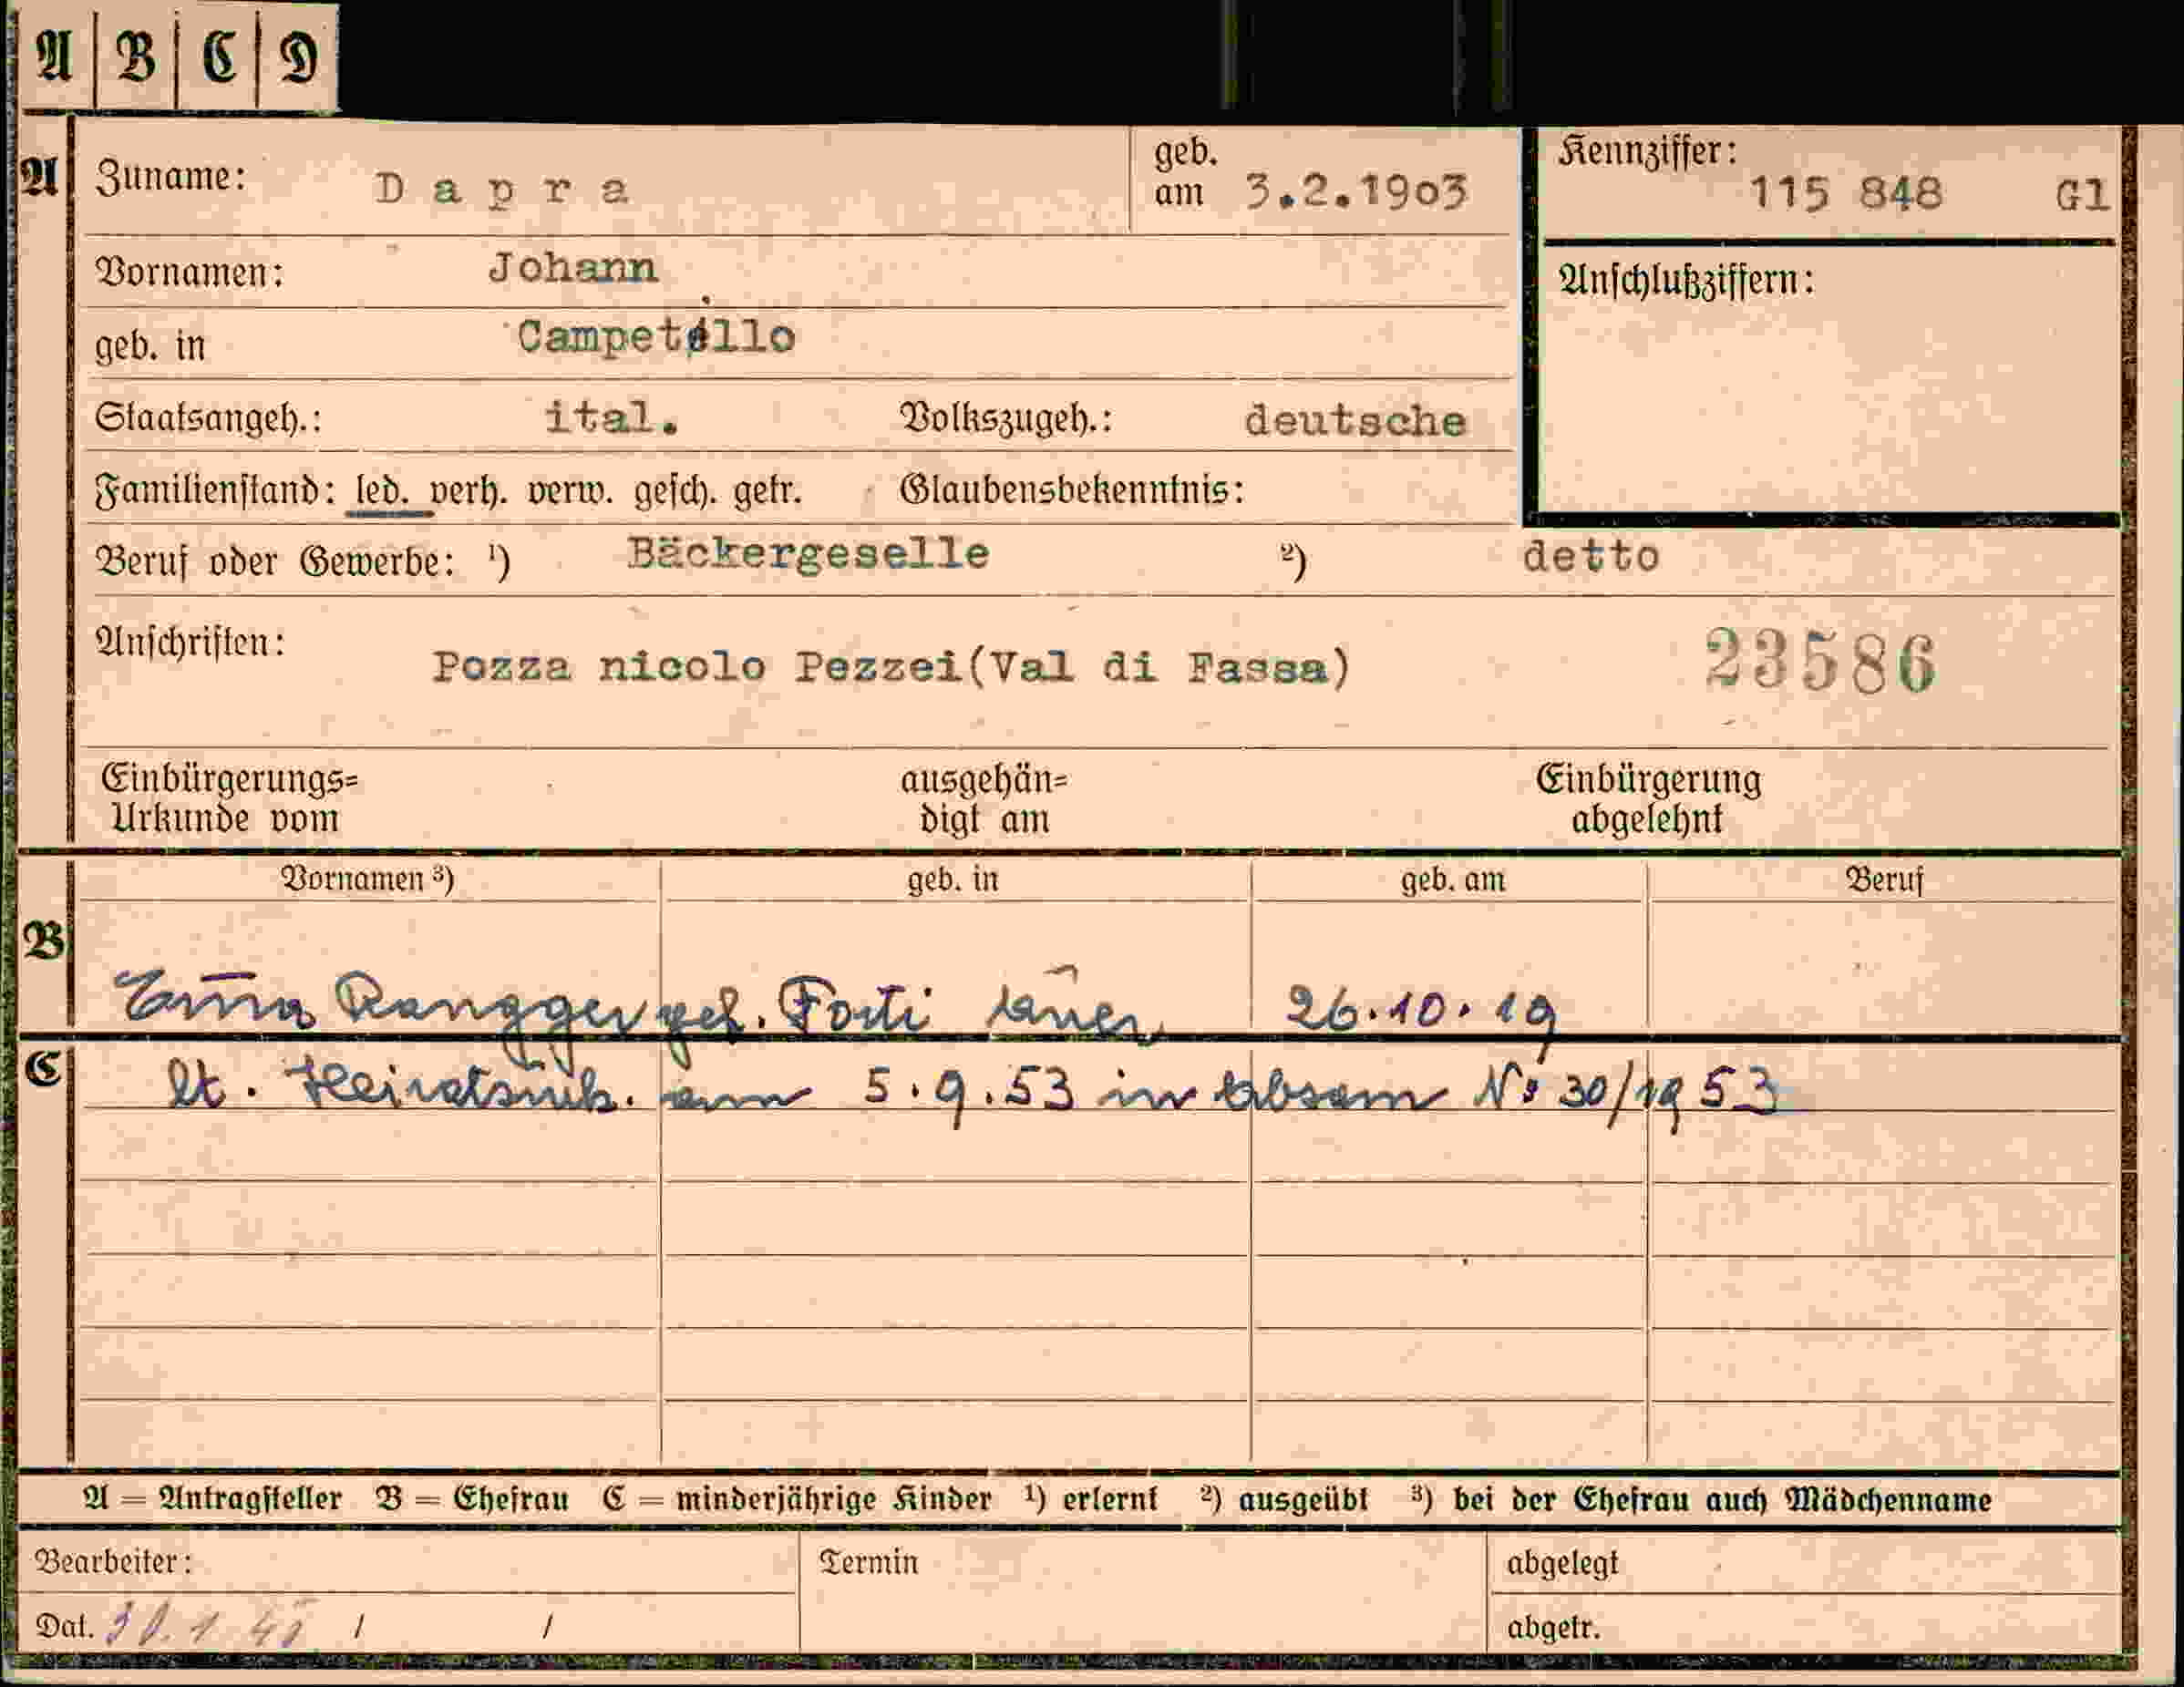 A B C D
A Zuname: Dapra geb. am 3.2.1903 Kennziffer: 115 848 Gl
Vornamen: Johann Anschlußziffern:
geb. in
Staatsangeh.: ital. Volkszugeh.: deutsche
Familienstand: led. verh. verw. gesch. getr. Glaubensbekenntnis:
Beruf oder Gewerbe: ¹) Bäckergeselle ²) detto
Anschriften: Pozza nicolo Pezzei(Val di Fassa) 23586
Einbürgerungs= ausgehän= Einbürgerung
Urkunde vom digt am abgelehnt
Vornamen ³) geb. in geb. am Beruf
B
Rangger geb. Forti 26.10.19
C
lt. Heiratsurk. am 5.9.53 in Absam No 30/1953
A = Antragsteller B = Ehefrau C = minderjährige Kinder ¹) erlernt ²) ausgeübt ³) bei der Ehefrau auch Mädchenname
Bearbeiter: Termin abgelegt
Dat. / / abgetr.